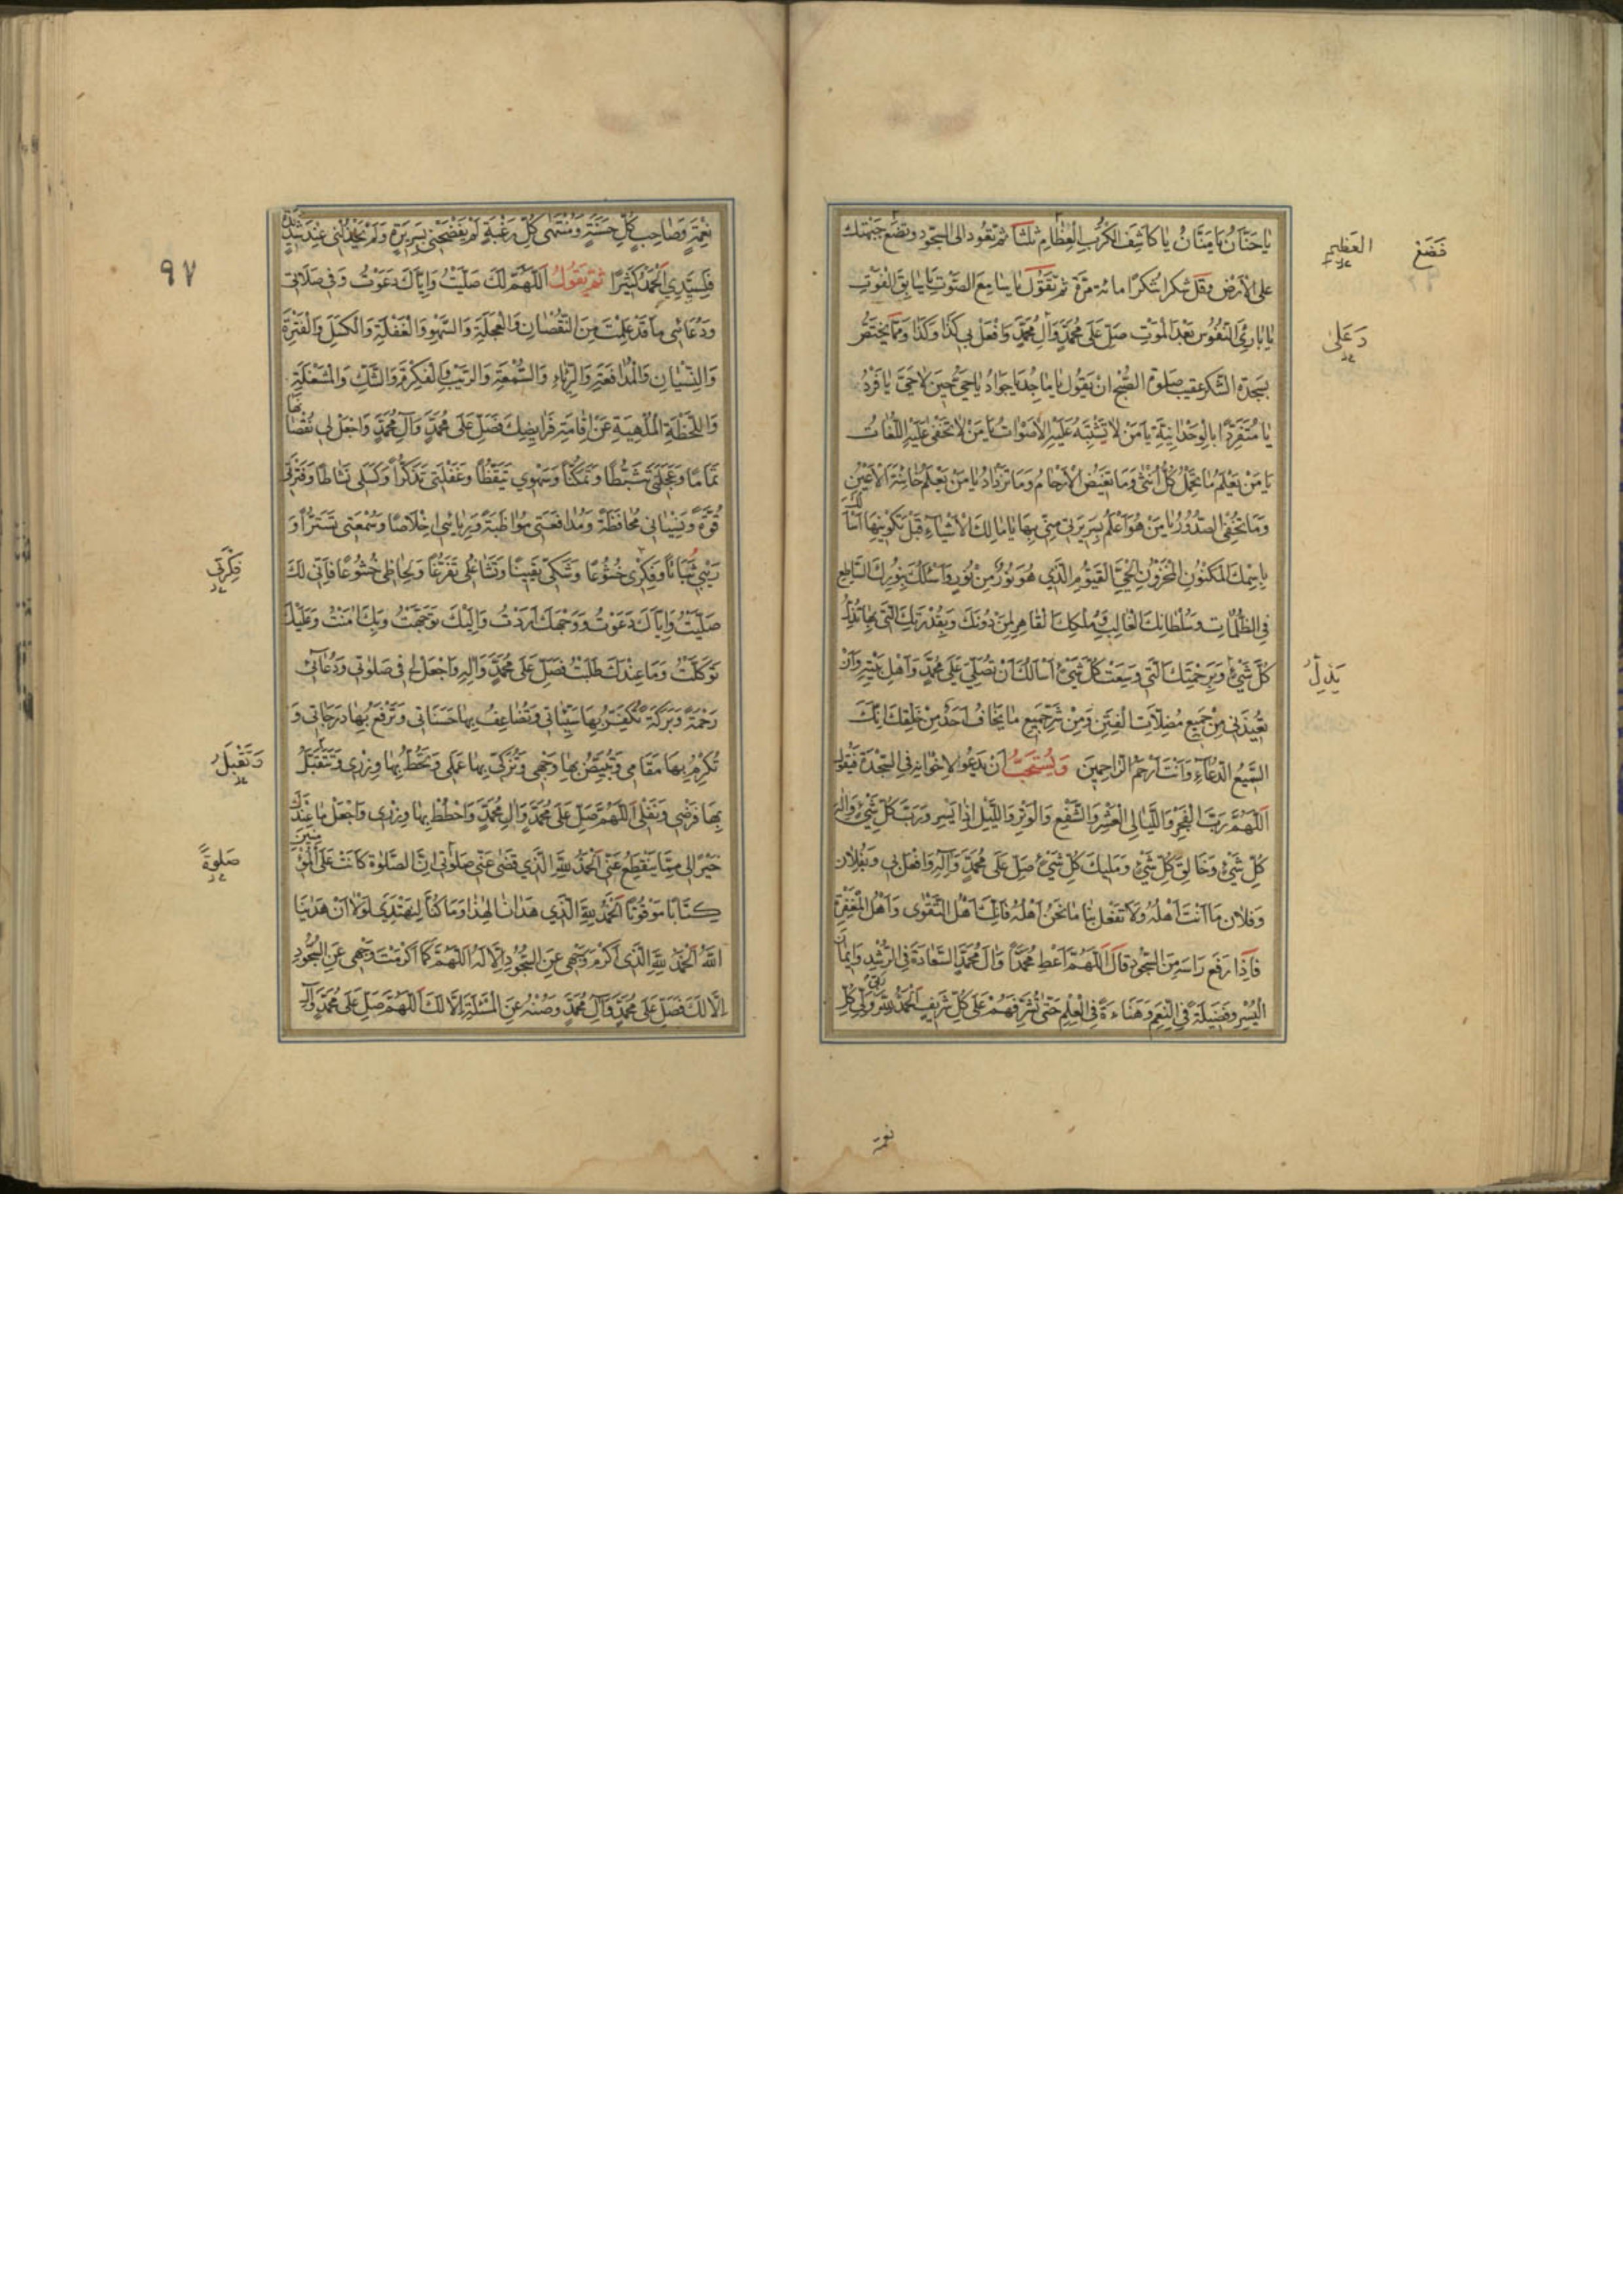 يا حَنَّانُ يا مَنَّانُ يا كاشِفَ الْكُرَبِ الْعِظامِ ثلثًا ثم تعود الى السجود وتضع جبهتك
على الارض وقل شكرا شكرًا مائة مرة ثم تقول يا سامِعَ الصَّوْتِ يا سابِقَ الْفَوْتِ
يا بارِئَ النُّفُوسِ بَعْدَ الْمَوْتِ صَلِّ عَلى مُحَمَّدٍ وَآلِ مُحَمَّدٍ وَافْعَلْ بي كَذا وَكَذا وممّا يختصّ
بسجدة الشكر عقيب صلوة الصُّبح ان يقول يا ماجِدُ يا جَوادُ يا حَيُّ حينَ لا حَيَّ يا فَرْدُ
يا مُنْفَرِدًا بِالْوَحْدانِيَّةِ يا مَنْ لا تَشْتَبِهُ عَلَيْهِ الْاَصْواتُ يا مَنْ لا تَخْفى عَلَيْهِ اللُّغاتُ
يا مَنْ يَعْلَمُ ما تَحْمِلُ كُلُّ اُنْثى وَما تَغيضُ الْاَرْحامُ وَما تَزْدادُ يا مَنْ يَعْلَمُ خائِنَةَ الْاَعْيُنِ
وَما تُخْفِي الصُّدُورُ يا مَنْ هُوَ اَعْلَمُ بِسَريرَتي مِنّي بِها يا مالِكَ الْاَشْياءِ قَبْلَ تَكْوينِها اَسْأَلُكَ
بِاسْمِكَ الْمَكْنُونِ الْمَخْزُونِ الْحَيِّ الْقَيُّومِ الَّذي هُوَ نُورٌ مِنْ نُورٍ وَاَسْئَلُكَ بِنُورِكَ السّاطِعِ
فِي الظُّلُماتِ وَسُلْطانِكَ الْغالِبِ وَمُلْكِكَ الْقاهِرِ لِمَنْ دُونَكَ وَبِقُدْرَتِكَ الَّتي بِها تُذِلُّ
كُلَّ شَيْءٍ وَبِرَحْمَتِكَ الَّتي وَسِعَتْ كُلَّ شَيْءٍ اَسْألُكَ اَنْ تُصَلِّيَ عَلى مُحَمَّدٍ وَاَهْلِ بَيْتِهِ وَاَنْ
تُعيذَني مِنْ جَميعِ مُضِلّاتِ الْفِتَنِ وَمِنْ شَرِّ جَميعِ ما يَخافُ اَحَدٌ مِنْ خَلْقِكَ اِنَّكَ
السَّميعُ الدُّعاءِ وَاَنْتَ اَرْحَمُ الرّاحِمينَ وَيُسْتَحَبُّ اَنْ يَدْعُوَ لاِخْوانِهِ فِي السَّجْدَةِ فَيَقُولُ
اَللّهُمَّ رَبَّ الْفَجْرِ وَاللَّيالِي الْعَشْرِ وَالشَّفْعِ وَالْوَتْرِ وَاللَّيْلِ اِذا يَسْرِ وَرَبَّ كُلِّ شَيْءٍ وَاِلهَ
كُلِّ شَيْءٍ وَخالِقَ كُلِّ شَيْءٍ وَمَليكَ كُلِّ شَيْءٍ صَلِّ عَلى مُحَمَّدٍ وَآلِهِ وَافْعَلْ بي وَبِفُلانٍ
وَفُلانٍ ما اَنْتَ اَهْلُهُ وَلا تَفْعَلْ بِنا ما نَحْنُ اَهْلُهُ فَاِنَّكَ اَهْلُ التَّقْوى وَاَهْلُ الْمَغْفِرَةِ
فَاِذا رَفَعَ رَاسَهُ مِنَ السُّجُودِ قالَ اَللّهُمَّ اَعْطِ مُحَمَّدًا وَآلَ مُحَمَّدٍ السَّعادَةَ فِي الرُّشْدِ وَايمانَ
الْيُسْرِ وَفَضيلَةً فِي النِّعَمِ وَهَناءَةً فِي الْعِلْمِ حَتّى تُشَرِّفَهُمْ عَلى كُلِّ شَريفٍ اَلْحَمْدُ لِلّهِ وَلِيِّ كُلِّ
فَضَعْ
العَظيمِ
وَعَلى
يَذِلُّ
نعمة
٩٧
نِعْمَةٍ وَصاحِبِ كُلِّ حَسَنَةٍ وَمُنْتَهى كُلِّ رَغْبَةٍ لَمْ يَفْضَحْني بِسَريرَةٍ وَلَمْ يَخْذُلْني عِنْدَ شَديدَةٍ
فَلِسَيِّدِي الْحَمْدُ كَثيرًا ثُمَّ يَقُولُ اَللّهُمَّ لَكَ صَلَّيْتُ وَاِيّاكَ دَعَوْتُ وَفي صَلاتي
وَدُعائي ما قَدْ عَلِمْتَ مِنَ النُّقْصانِ وَالْعَجَلَةِ وَالسَّهْوِ وَالْغَفْلَةِ وَالْكَسَلِ وَالْفَتْرَةِ
وَالنِّسْيانِ وَالْمُدافَعَةِ وَالرِّياءِ وَالسُّمْعَةِ وَالرَّيْبِ وَالْفِكْرَةِ وَالشَّكِّ وَالْمَشْغَلَةِ
وَاللَّحْظَةِ الْمُلْهِيَةِ عَنْ اِقامَةِ فَرايِضِكَ فَصَلِّ عَلى مُحَمَّدٍ وَآلِ مُحَمَّدٍ وَاجْعَلْ لي نُقْصانَها
تَمامًا وَعَجَلَتي تَثَبُّطًا وَتَمَكُّنًا وَسَهْوي تَيَقُّظًا وَغَفْلَتي تَذَكُّرًا وَكَسَلي نَشاطًا وَفَتْرَتي
قُوَّةً وَنِسْياني مُحافَظَةً وَمُدافَعَتي مُواظَبَةً وَرِيائي اِخْلاصًا وَسُمْعَتي تَسَتُّرًا وَ
رَيْبي ثَباتًا وَفِكْري خُشُوعًا وَشَكّي يَقينًا وَتَشاغُلي تَفَرُّغًا وَلِحاظي خُشُوعًا فَاِنّي لَكَ
صَلَّيْتُ وَاِيّاكَ دَعَوْتُ وَوَجْهَكَ اَرَدْتُ وَاِلَيْكَ تَوَجَّهْتُ وَبِكَ امَنْتُ وَعَلَيْكَ
تَوَكَّلْتُ وَما عِنْدَكَ طَلَبْتُ فَصَلِّ عَلى مُحَمَّدٍ وَآلِهِ وَاجْعَلْ لي في صَلوتي وَدُعائي
رَحْمَةً وَبَرَكَةً تُكَفِّرُ بِها سَيِّئاتي وَتُضاعِفُ بِها حَسَناتي وَتَرْفَعُ بِها دَرَجاتي وَ
تُكْرِمُ بِها مَقامي وَتُبَيِّضُ بِها وَجْهي وَتُزَكّي بِها عَمَلي وَتَحُطُّ بِها وِزْري وَتَتَقَبَّلُ
بِها فَرْضي وَنَفْلي اَللّهُمَّ صَلِّ عَلى مُحَمَّدٍ وَآلِ مُحَمَّدٍ وَاحْطُطْ بِها وِزْري وَاجْعَلْ ما عِنْدَكَ
خَيْرًا لي مِمّا يَنْقَطِعُ عَنّي اَلْحَمْدُ لِلّهِ الَّذي قَضى عَنّي صَلوتي اِنَّ الصَّلوةَ كانَتْ عَلَى الْمُؤْمِنينَ
كِتابًا مَوْقُوتًا اَلْحَمْدُ لِلّهِ الَّذي هَدانا لِهذا وَما كُنّا لِنَهْتَدِيَ لَوْلا اَنْ هَدانَا
اللّهُ اَلْحَمْدُ لِلّهِ الَّذي اَكْرَمَ وَجْهي عَنِ السُّجُودِ اِلّا لَهُ اَللّهُمَّ كَما اَكْرَمْتَ وَجْهي عَنِ السُّجُودِ
اِلّا لَكَ فَصَلِّ عَلى مُحَمَّدٍ وَآلِ مُحَمَّدٍ وَصُنْهُ عَنِ الْمَسْئَلَةِ اِلّا لَكَ اَللّهُمَّ صَلِّ عَلى مُحَمَّدٍ وَآلِهِ
فِكْرَتي
وَتَقْبَلُ
صَلوةً